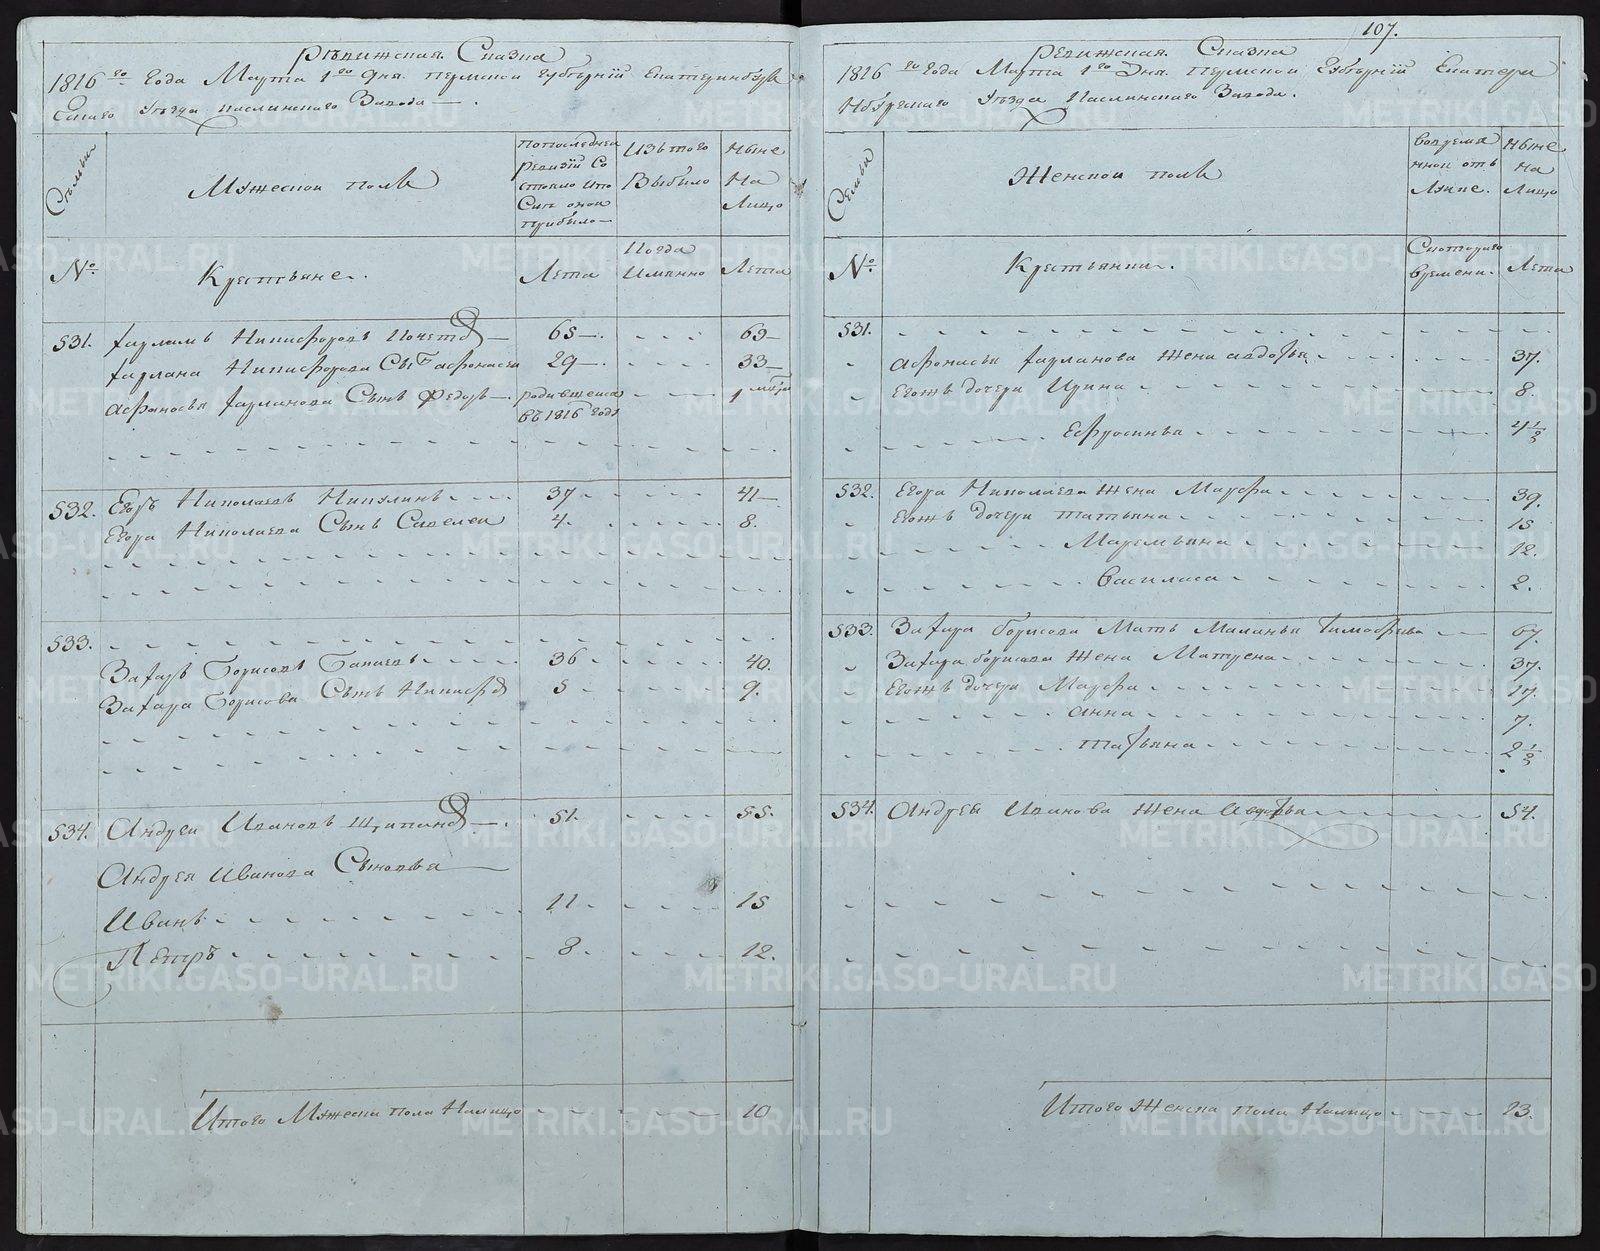 107.
Ревижская Сказка
1816 го Года Марта 1 го Дня Пермской Губернїи Екатеринбург
Скаго Уезда Каслинского Завода
Семьи
Мужескои полъ
попоследнеи
Ревизїи Со
стояло ипо
Слъ онои
прибыло
Изътого
Выбыло
Ныне
На
Лицо
№
Крестьяне.
Лета
Когда
Имянно
Лета
531.
65
69
29
33
Афонасья Харланова Сынъ Федоръ
родившеися
въ 1816 Годе
1
532. Егоръ Николаевъ Никулинъ
37
41
Егора Николаева Сынъ Савелеи
4.
8.
533.
Захаръ Борисовъ
36
40.
Захара Борисова Сынъ Никифор
5
9.
534. Андреи Ивановъ
51.
55.
Андрея Иванова Сыновья
Иванъ
11
15
Петръ
8.
12.
Итого Мужеска пола Налицо
10
Ревижская Сказка
1816 го Года Марта 1 го Дня Пермской Губернїи Екатери
Нбургскаго Уезда Каслинского Завода.
Семьи
Женскои полъ
вовремя
ннои отъ
Лучке.
Ныне
На
Лицо
№
Крестьянки.
Скоторого
времени.
Лета
531.
Афонасья Харланова Жена авдотья
37.
Егожъ дочери Ирина
8.
Ефросинья
4 1/2
532. Егора Николаева Жена Марфа
39.
Егожъ дочери татьяна
15
Маремьяна
12.
Василиса
2.
533. Захара борисова Мать Маланья Тимофеева
67.
Захара борисова Жена Матрена
37.
Егожъ дочери Марфа
17.
анна
7.
татьяна
2 1/2
534. Андрея Иванова Жена Авдотья
54.
Итого Женска пола Налицо
13.
METRIKI.GASO-URAL.RU